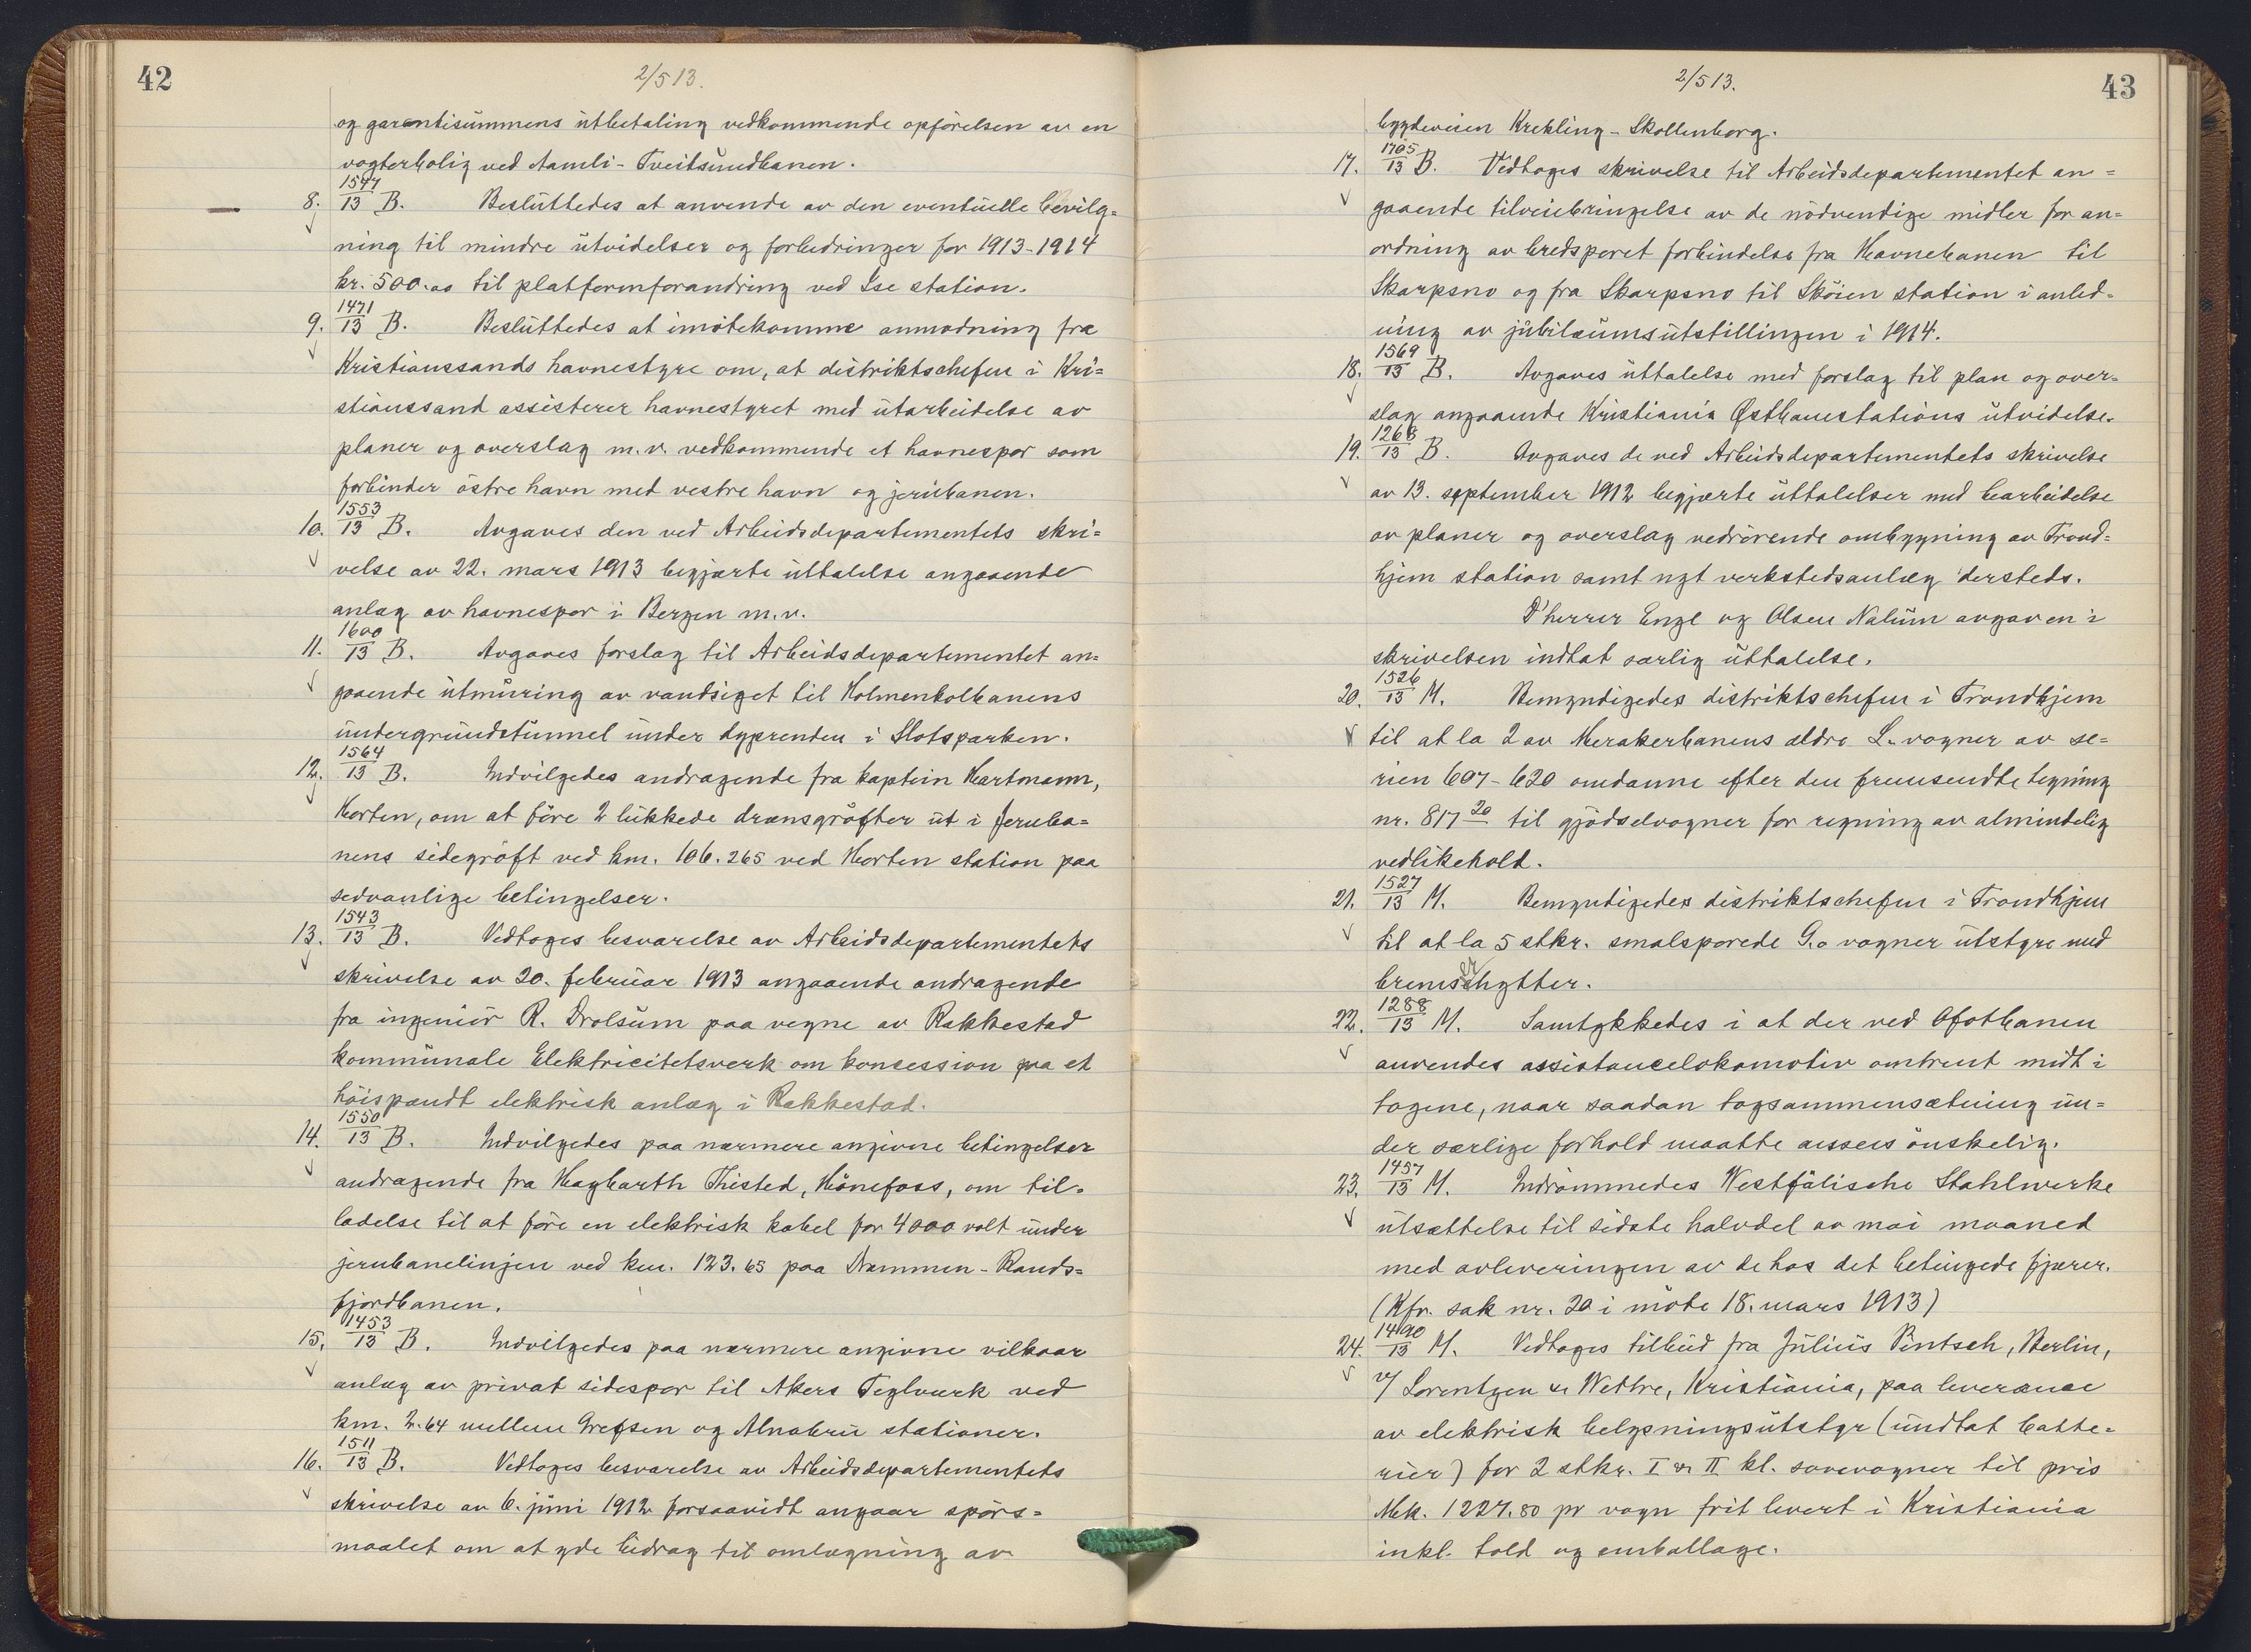 42
2/5 13.
og garantisummens utbetaling vedkommende opförelsen av en
vogterbolig ved Aamli-Tveitsundbanen.
8. 1547/13 B. Besluttedes at anvende av den eventuelle bevilg=
ning til mindre utvidelser og forbedringer for 1913-1914
kr. 500.00 til platformforandring ved Ise station.
9. 1471/13 B. Besluttedes at imötekomme anmodning fra
Kristianssands havnestyre om, at distriktschefen i Kri=
stianssand assisterer havnestyret med utarbeidelse av
planer og overslag m.v. vedkommende et havnespor som
forbinder östre havn med vestre havn og jernbanen.
10. 1553/13 B. Avgaves den ved Arbeidsdepartementets skri=
velse av 22. mars 1913 begjærte uttalelse angaaende
anlæg av havnespor i Bergen m.v.
11. 1600/13 B. Avgaves forslag til Arbeidsdepartementet an=
gaaende utmuring av vandsiget til Holmenkolbanens
undergrundstunnel under dyprenden i Slotsparken.
12. 1564/13 B. Indvilgedes andragende fra kaptein Hartmann,
Horten, om at före 2 lukkede drænsgröfter ut i Jernba=
nens sidegröft ved km. 106.265 ved Horten station paa
sedvanlige betingelser.
13. 1543/13 B. Vedtoges besvarelse av Arbeidsdepartementets
skrivelse av 20. februar 1913 angaaende andragende
fra ingeniör R. Drolsum paa vegne av Rakkestad
kommunale Elektricitetsverk om konsession paa et
höispændt elektrisk anlæg i Rakkestad.
14. 1550/13 B. Indvilgedes paa nærmere angivne betingelser
andragende fra Hagbarth Thisted, Hönefoss, om til=
ladelse til at före en elektrisk kabel for 4000 volt under
jernbanelinjen ved km. 123.65 paa Drammen-Rands=
fjordbanen.
15. 1453/13 B. Indvilgedes paa nærmere angivne vilkaar
anlæg av privat sidespor til Akers Teglverk ved
km. 2.64 mellem Grefsen og Alnabru stationer.
16. 1511/13 B. Vedtoges besvarelse av Arbeidsdepartementets
skrivelse av 6. juni 1912 forsaavidt angaar spörs=
maalet om at yde bidrag til omlægning av
43
2/5 13.
bygdeveien Krekling-Skollenborg.
17. 1705/13 B. Vedtoges skrivelse til Arbeidsdepartementet an=
gaaende tilveiebringelse av de nödvendige midler for an=
ordning av bredsporet forbindelse fra Havnebanen til
Skarpsno og fra Skarpsno til Sköien station i anled=
ning av jubilæumsutstillingen i 1914.
18. 1569/13 B. Avgaves uttalelse med forslag til plan og over=
slag angaaende Kristiania Østbanestations utvidelse.
19. 1268/13 B. Avgaves de ved Arbeidsdepartementets skrivelse
av 13. september 1912 begjærte uttalelser med bearbeidelse
av planer og overslag vedrörende ombygning av Trond=
hjem station samt nyt verkstedsanlæg dersteds.
D'herrer Enge og Olsen Nalum avgav en i
skrivelsen indtat særlig uttalelse.
20. 1526/13 M. Bemyndigedes distriktschefen i Trondhjem
til at la 2 av Merakerbanens ældre L. vogner av se=
rien 607-620 omdanne efter den fremsendte tegning
nr. 817 20 til gjödselvogner for regning av almindelig
vedlikehold.
21. 1527/13 M. Bemyndigedes distriktschefen i Trondhjem
til at la 5 stkr. smalsporede G.o vogner utstyre med
bremsehytter.
22. 1288/13 M. Samtykkedes i at der ved Ofotbanen
anvendes assistancelokomotiv omtrent midt i
togene, naar saadan togsammensætning un=
der særlige forhold maatte ansees önskelig.
23. 1457/13 M. Indrömmedes Westfälische Stahlwerke
utsættelse til sidste halvdel av mai maaned
med avleveringen av de hos det betingede fjærer.
(Kfr. sak nr. 20 i möte 18. mars 1913)
24. 1490/13 M. Vedtoges tilbud fra Julius Pintsch, Berlin,
v/ Lorentzen & Wettre, Kristiania, paa leveranse
av elektrisk belysningsutstyr (undtat batte=
rier) for 2 stkr. I & II kl. sovevogner til pris
Mk. 1227.80 pr vogn frit levert i Kristiania
inkl. told og emballage.